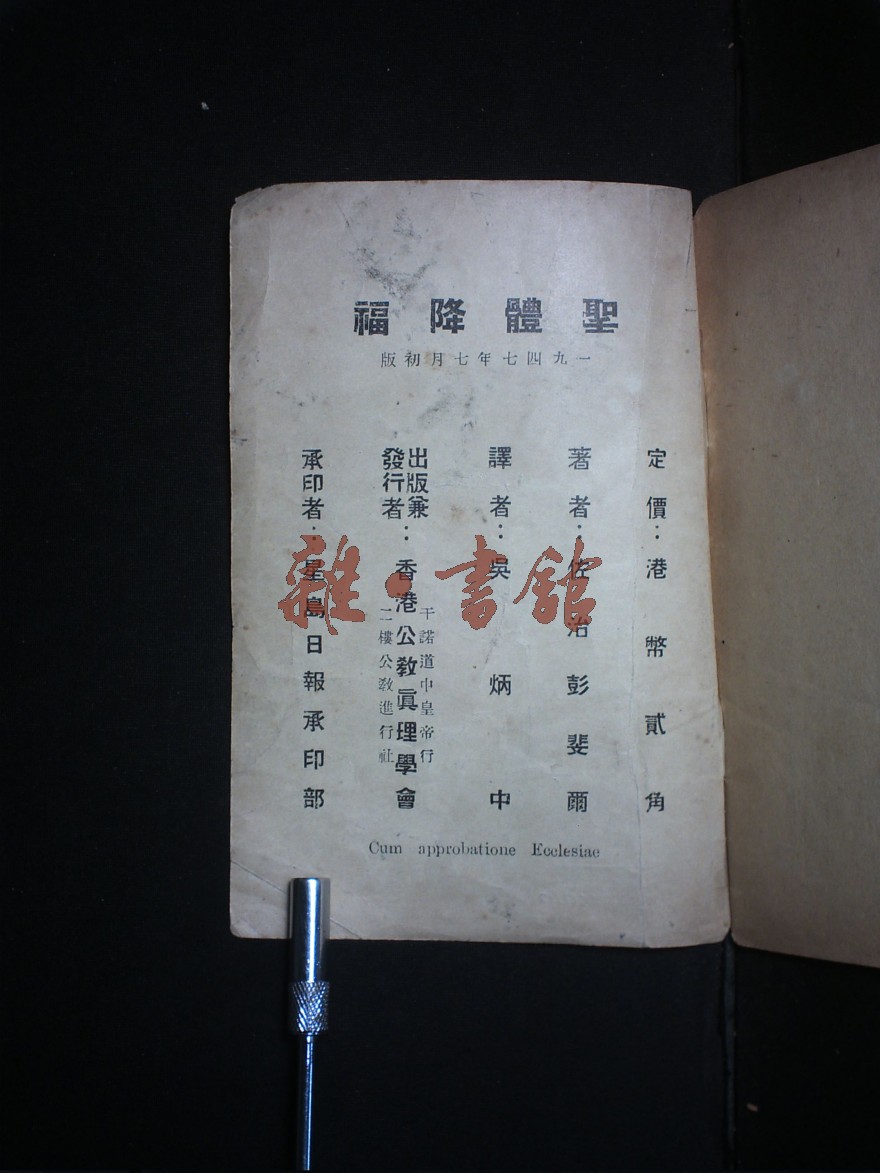 聖體降福
一九四七年七月初版
定價：港幣貳角
著者：佐治彭斐爾
譯者：吳炳中
出版兼發行者：香港公教眞理學會
干諾道中皇帝行
二樓公教進行社
承印者：星島日報承印部
Cum approbatione Ecclesiae
雜·書館